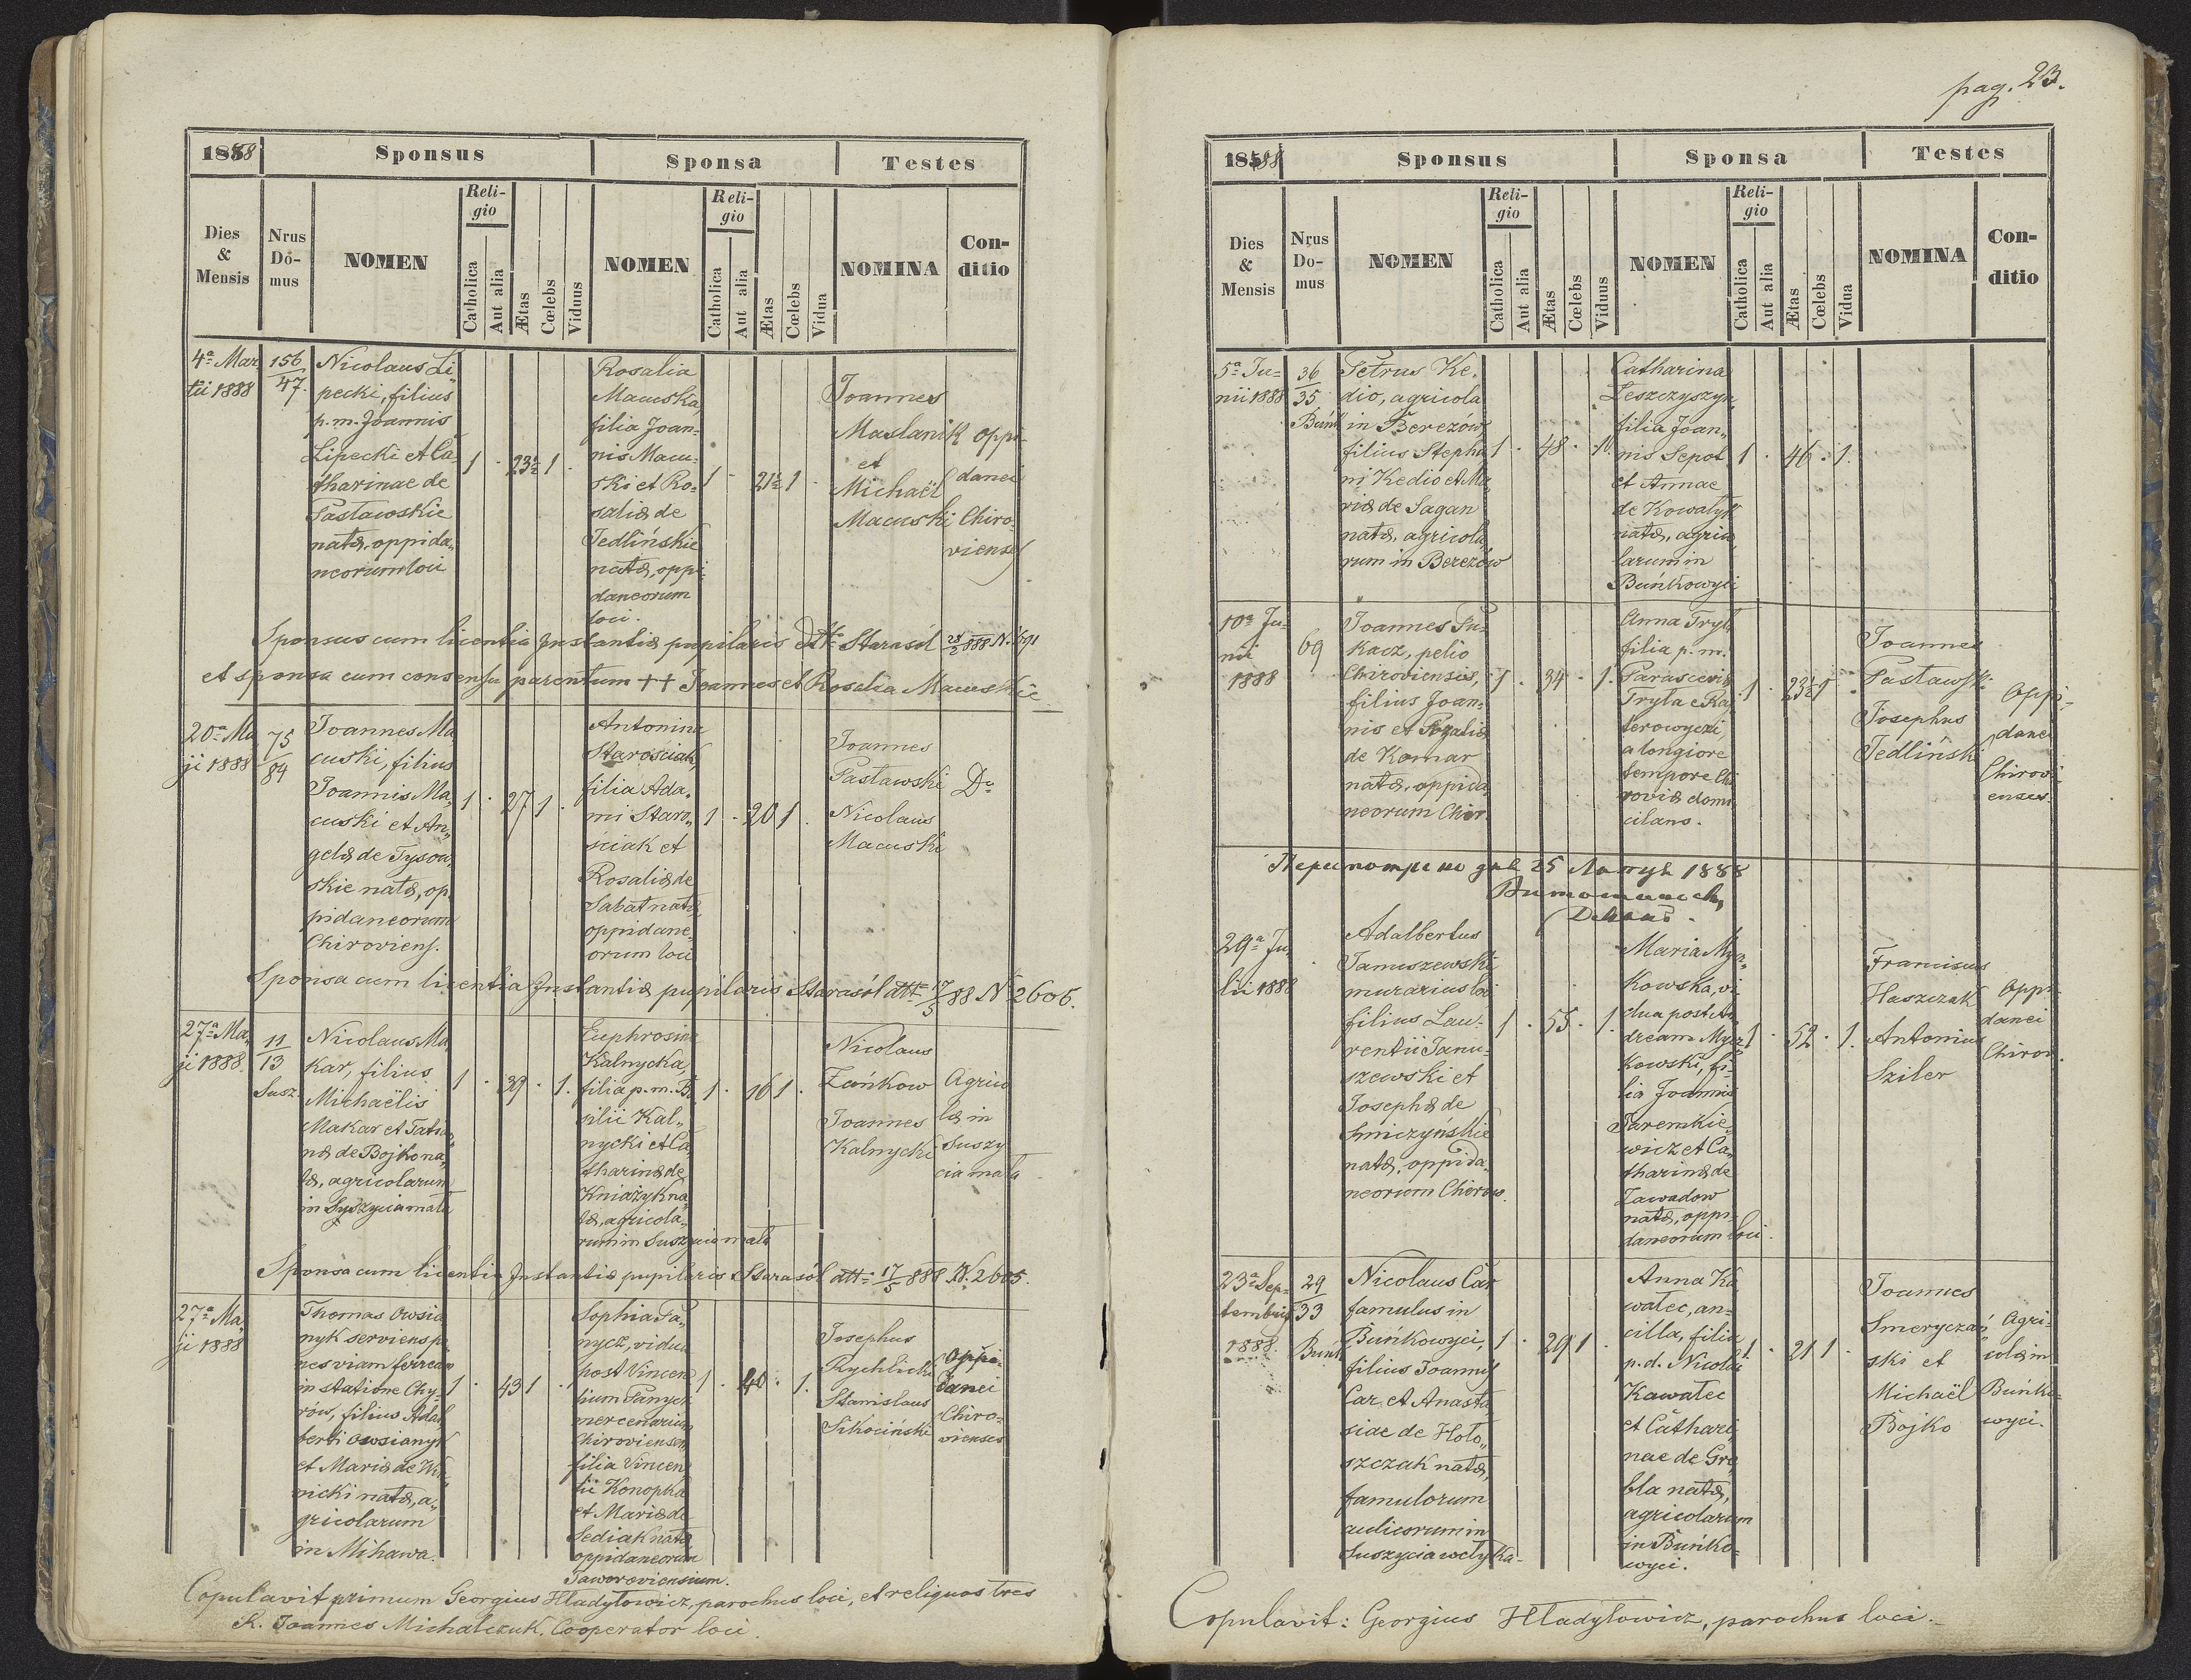 pag. 23.
1888
Sponsus
Sponsa
Testes
Dies & Mensis
Nrus Do-mus
NOMEN
Reli-gio
Catholica
Aut alia
Ætas
Cœlebs
Viduus
NOMEN
Reli-gio
Catholica
Aut alia
Ætas
Cœlebs
Vidua
NOMINA
Con-ditio
4a Mar
tii 1888
156
47.
Nicolaus Li
pecki, filius
p. m. Joannis
Lipecki et Ca-
tharinae de
Pasławskie
natæ, oppida„
neorum loci
1 · 23½ 1 ·
Rosalia
Macuska,
filia Joan=
nis Macu-
ski et Ro-
saliæ de
Jedlińskie
natæ, oppi-
daneorum
loci.
1 - 21½ 1 ·
Joannes
Maslanik
et
Michaël
Macuski
oppi-
danei
Chiro-
vienses
Sponsus cum licentia Instantiæ pupilaris dtto Starasól 28/2 888 N. 1691
et sponsa cum consensu parentum ++ Joannes et Rosalia Macuskie
20a Ma
ji 1888
75
84
Joannes Ma
cuski, filius
Joannis Ma„
cuski et An„
gelæ de Tysow„
skie natæ, op„
pidaneorum
Chiroviens.
1 · 27 1 ·
Antonina
Starościak,
filia Ada„
mi Staro„
ściak et
Rosaliæ de
Sabat natæ,
oppidane„
orum loci
1 - 20 1 .
Joannes
Pasławski
Nicolaus
Macuski
Do
Sponsa cum licentia Instantiæ pupilaris Starasól dtto 17/5 88 No 2606.
27a Ma„
ji 1888.
11
13
Susz.
Nicolaus Ma
kar, filius
Michaëlis
Makar et Tatia„
næ de Bojko na„
tæ, agricolarum
in Syszycia mała
1 · 39 · 1.
Euphrosina
Kalnycka,
filia p. m. Ba
silii Kal„
nycki et Ca
tharinæ de
Kniażyk na„
tæ, agricola„
rum in Suszycia mała
1 · 16 1 ·
Nicolaus
Zańkow
Joannes
Kalnycki
Agrico
læ in
Suszy
cia mała
Sponsa cum licentia Instantiæ pupilaris Starasól dtto 17/5 888 N. 2605.
27a Ma„
ji 1888
Thomas Owsia
nyk serviens pe
nes viam ferream
in statione Chy-
rów, filius Adal
berti Owsianyk
et Mariæ de
natæ, a„
gricolarum
in Mihawa.
1 · 43 1 ·
Sophia Pa„
nycz, vidua
post Vincen
tium Panycz
mercenarium
Chiroviensem
filia Vincen
tii Konopka
et Mariæ de
Sediak natæ
oppidaneorum
Jaworoviensium.
1 · 40 · 1.
Josephus
Rychlicki
Stanislaus
Sikociński
Oppi-
danei
Chiro-
vienses
Copulavit primum Georgius Hładyłowicz, parochus loci, et reliquos tres
K. Joannes Michalczuk, Cooperator loci.
1888
Sponsus
Sponsa
Testes
Dies & Mensis
Nrus Do-mus
NOMEN
Reli-gio
Catholica
Aut alia
Ætas
Cœlebs
Viduus
NOMEN
Reli-gio
Catholica
Aut alia
Ætas
Cœlebs
Vidua
NOMINA
Con-ditio
5a Ju=
nii 1888
36
35
Buńk
Petrus Ke„
dio, agricola
in Berezów,
filius Stepha
ni Kedio et Ma„
riæ de Sagan
natæ, agricola„
rum in Berezów
1 · 48 · 1.
Catharina
Leszczyszyn,
filia Joan„
nis Sepot
et Annae
de Kowalyk
natæ, agrico„
larum in
Buńkowyci
1 · 46 · 1.
10a Ju-
nii
1888
69
Joannes Su-
kacz, pelio
Chiroviensis,
filius Joan-
nis et Rozaliæ
de Komar
natæ, oppida„
neorum Chir.
1 · 34 · 1.
Anna Tryła
filia p. m.
Parasceviæ
Tryła e Ka
terowyczi,
a longiore
tempore Chi
roviæ domi
cilans.
1 · 23½ 1 ·
Joannes
Pasławski
Josephus
Jedliński
Oppi-
danei
Chirovi
enses.
25 1888
29a Ju„
lii 1888
Adalbertus
Januszewski
murarius loci
filius Lau-
rentii Janu-
szewski et
Josephæ de
Smiczyńskie
natæ, oppida„
neorum Chirow.
1 · 55 · 1.
Maria Mysz„
kowska, vi
dua post An
dream Mysz„
kowski, fi-
lia Joannis
Jaremkie„
wicz et Ca„
tharinæ de
Zawadow
natæ, oppi-
daneorum loci.
1 · 52 · 1.
Franciscus
Haszczak
Antonius
Sziler
Oppi
danei
Chirov.
23a Sep=
tembris
1888.
29
33
Buńk
Nicolaus Car
famulus in
Buńkowyci,
filius Joannis
Car et Anasta„
siae de Hoło„
szczak natæ,
famulorum
aulicorum in
Suszycia wełyka-
1 · 29 1 ·
Anna Ka
wałec, an-
cilla, filia
p. d. Nicolai
Kawałec
et Cathari
nae de Gre
bla natæ,
agricolarum
in Buńko-
wyci.
1 · 21 1 ·
Joannes
Smeryczań
ski et
Michaël
Bojko
Agri-
colæ in
Buńko-
wyci.
Copulavit: Georgius Hładyłowicz, parochus loci.